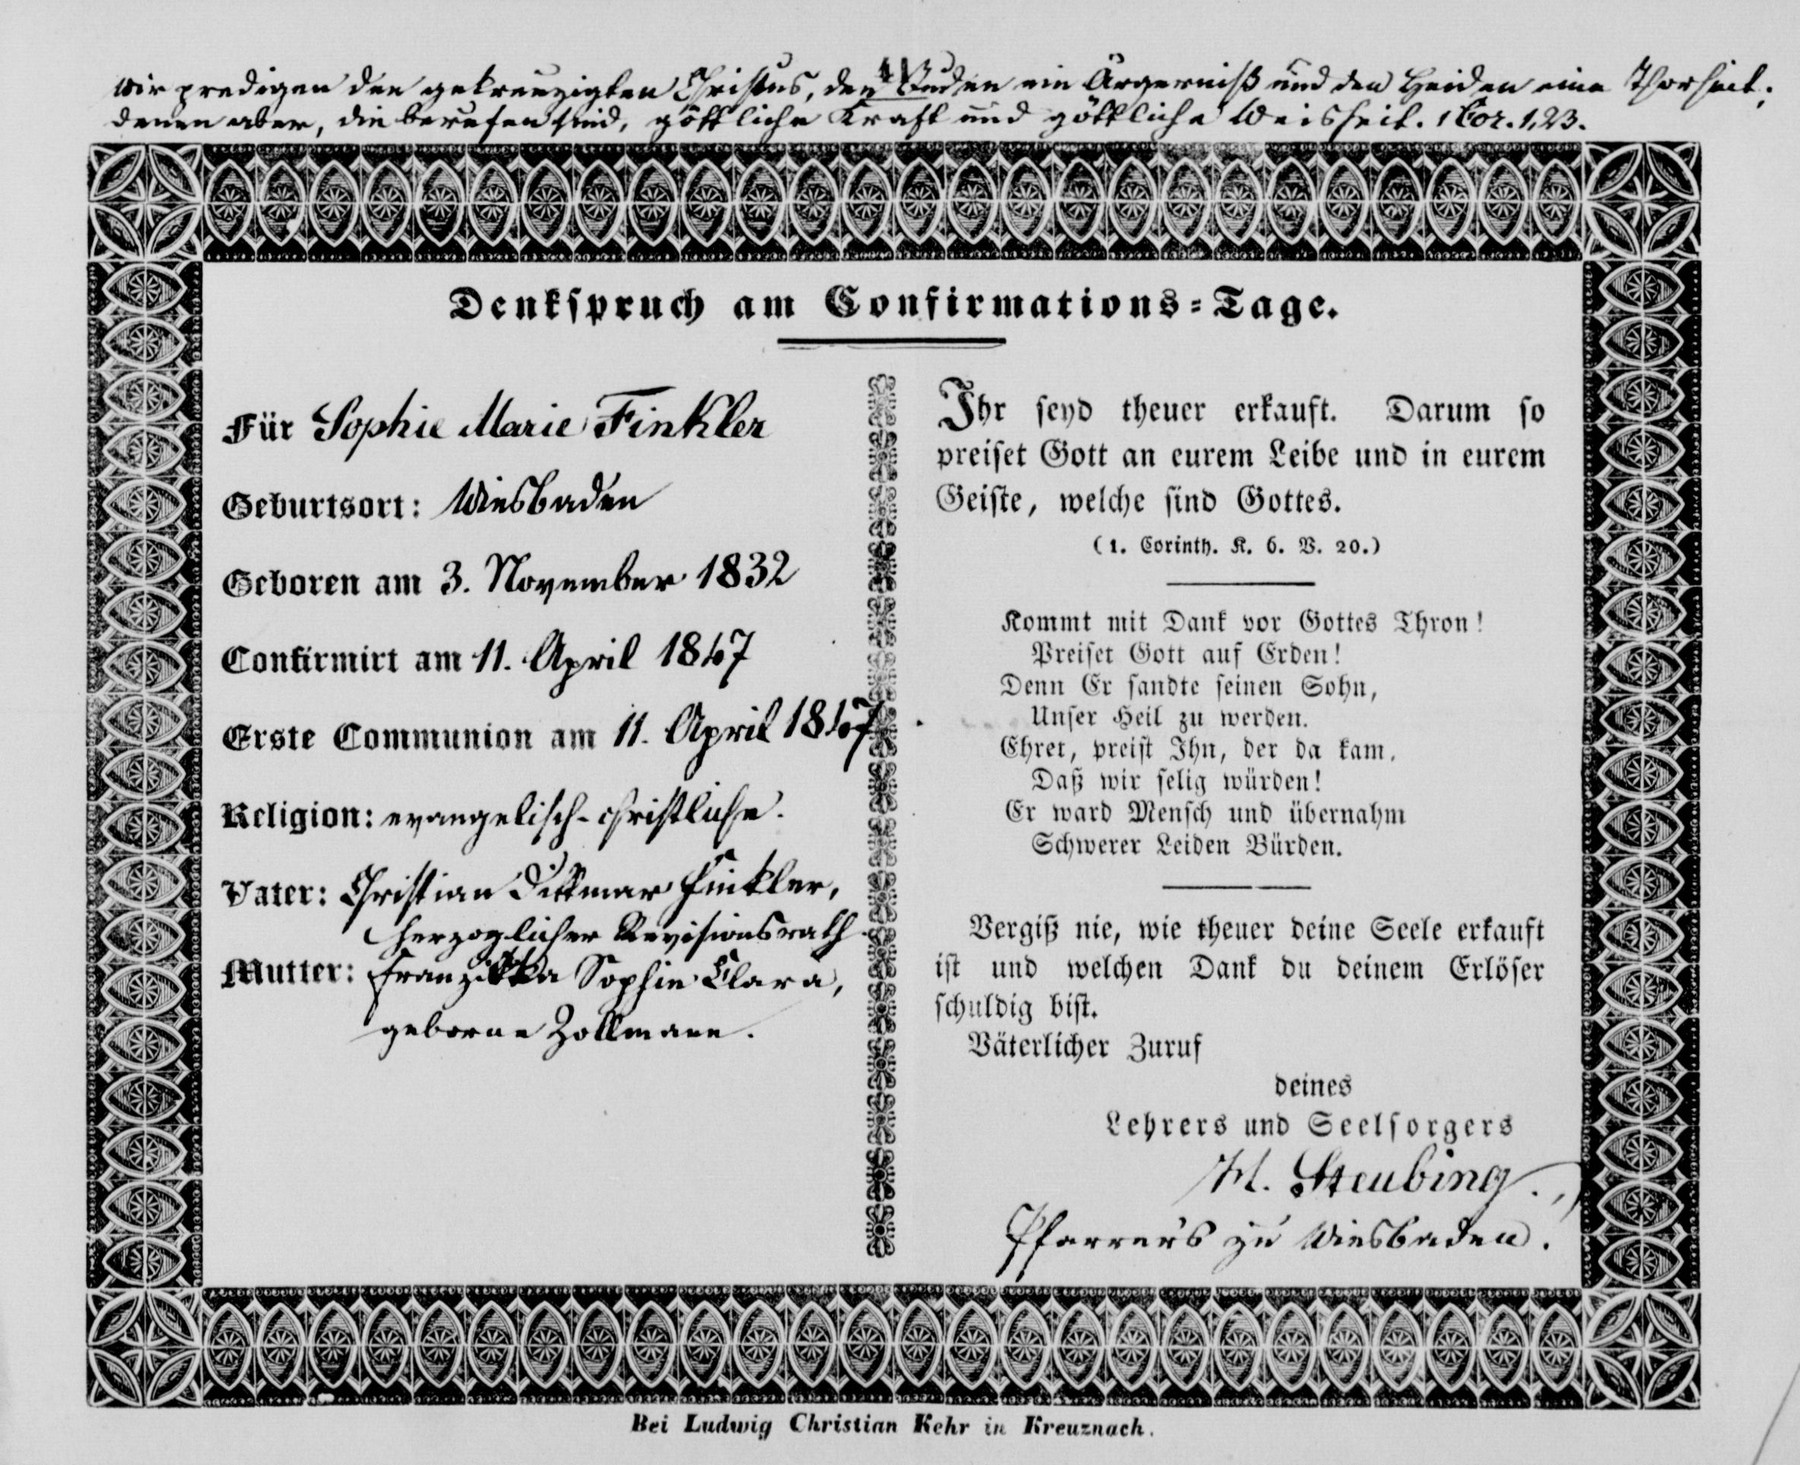 wir predigen den gekreuzigten Christus, den Juden ein Ärgerniß und den Heiden eine Thorheit;
denen aber, die berufen sind, göttliche Kraft und göttliche Weisheit. 1 Cor. 1,23.
Denkspruch am Confirmations-Tage.
Für Sophie Marie Finkler
Geburtsort: Wiesbaden
Geboren am 3. November 1832
Confirmirt am 11. April 1847
Erste Communion am 11. April 1847
Religion: evangelisch-christliche.
Vater: Christian Dittmar Finkler,
herzoglicher Revisionsrath
Mutter: Franziska Sophie Clara,
geborne Zollmann.
Ihr seyd theuer erkauft. Darum so
preiset Gott an eurem Leibe und in eurem
Geiste, welche sind Gottes.
(1. Corinth. K. 6. V. 20.)
Kommt mit Dank vor Gottes Thron!
Preiset Gott auf Erden!
Denn Er sandte seinen Sohn,
Unser Heil zu werden.
Ehret, preist Ihn, der da kam,
Daß wir selig würden!
Er ward Mensch und übernahm
Schwerer Leiden Bürden.
Vergiß nie, wie theuer deine Seele erkauft
ist und welchen Dank du deinem Erlöser
schuldig bist.
Väterlicher Zuruf
deines
Lehrers und Seelsorgers
Steubing.
Pfarrers zu Wiesbaden.
Bei Ludwig Christian Kehr in Kreuznach.